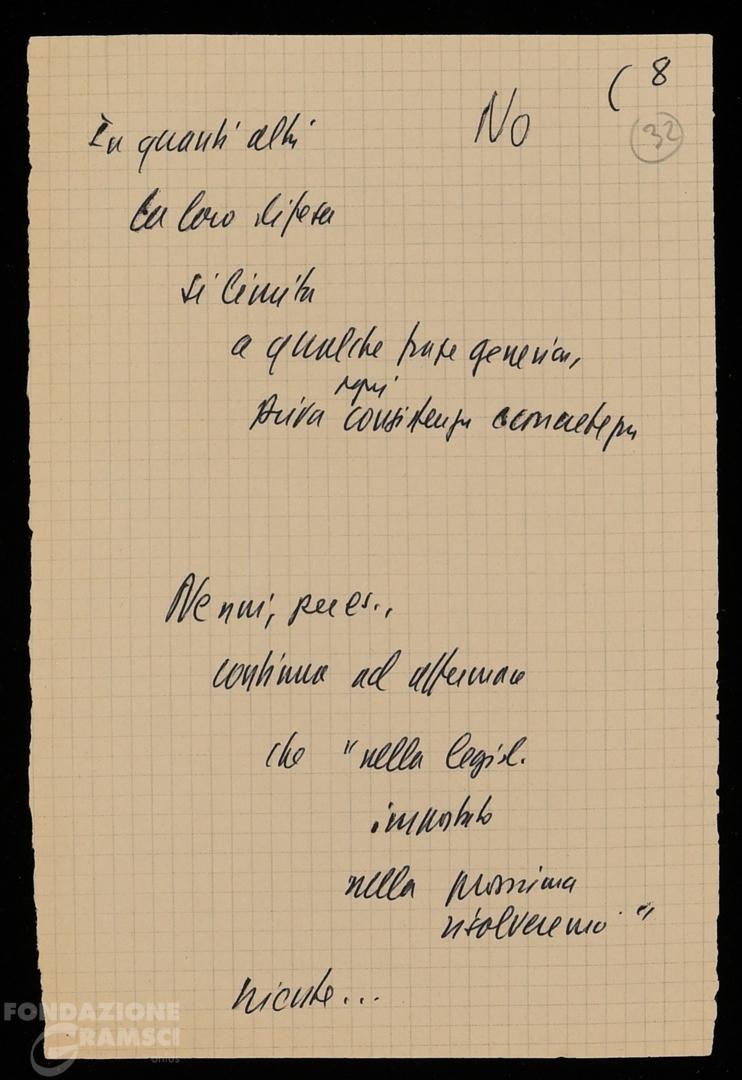 ( 8
No
32
In quanti altri
la loro difesa
si limita
a qualche frase generica,
ogni
priva consistenza concreta
Nenni, per es.,
continua ad affermare
che "nella legisl.
impostato
nella prossima
risolveremo"
niente...
FONDAZIONE
GRAMSCI
onlus